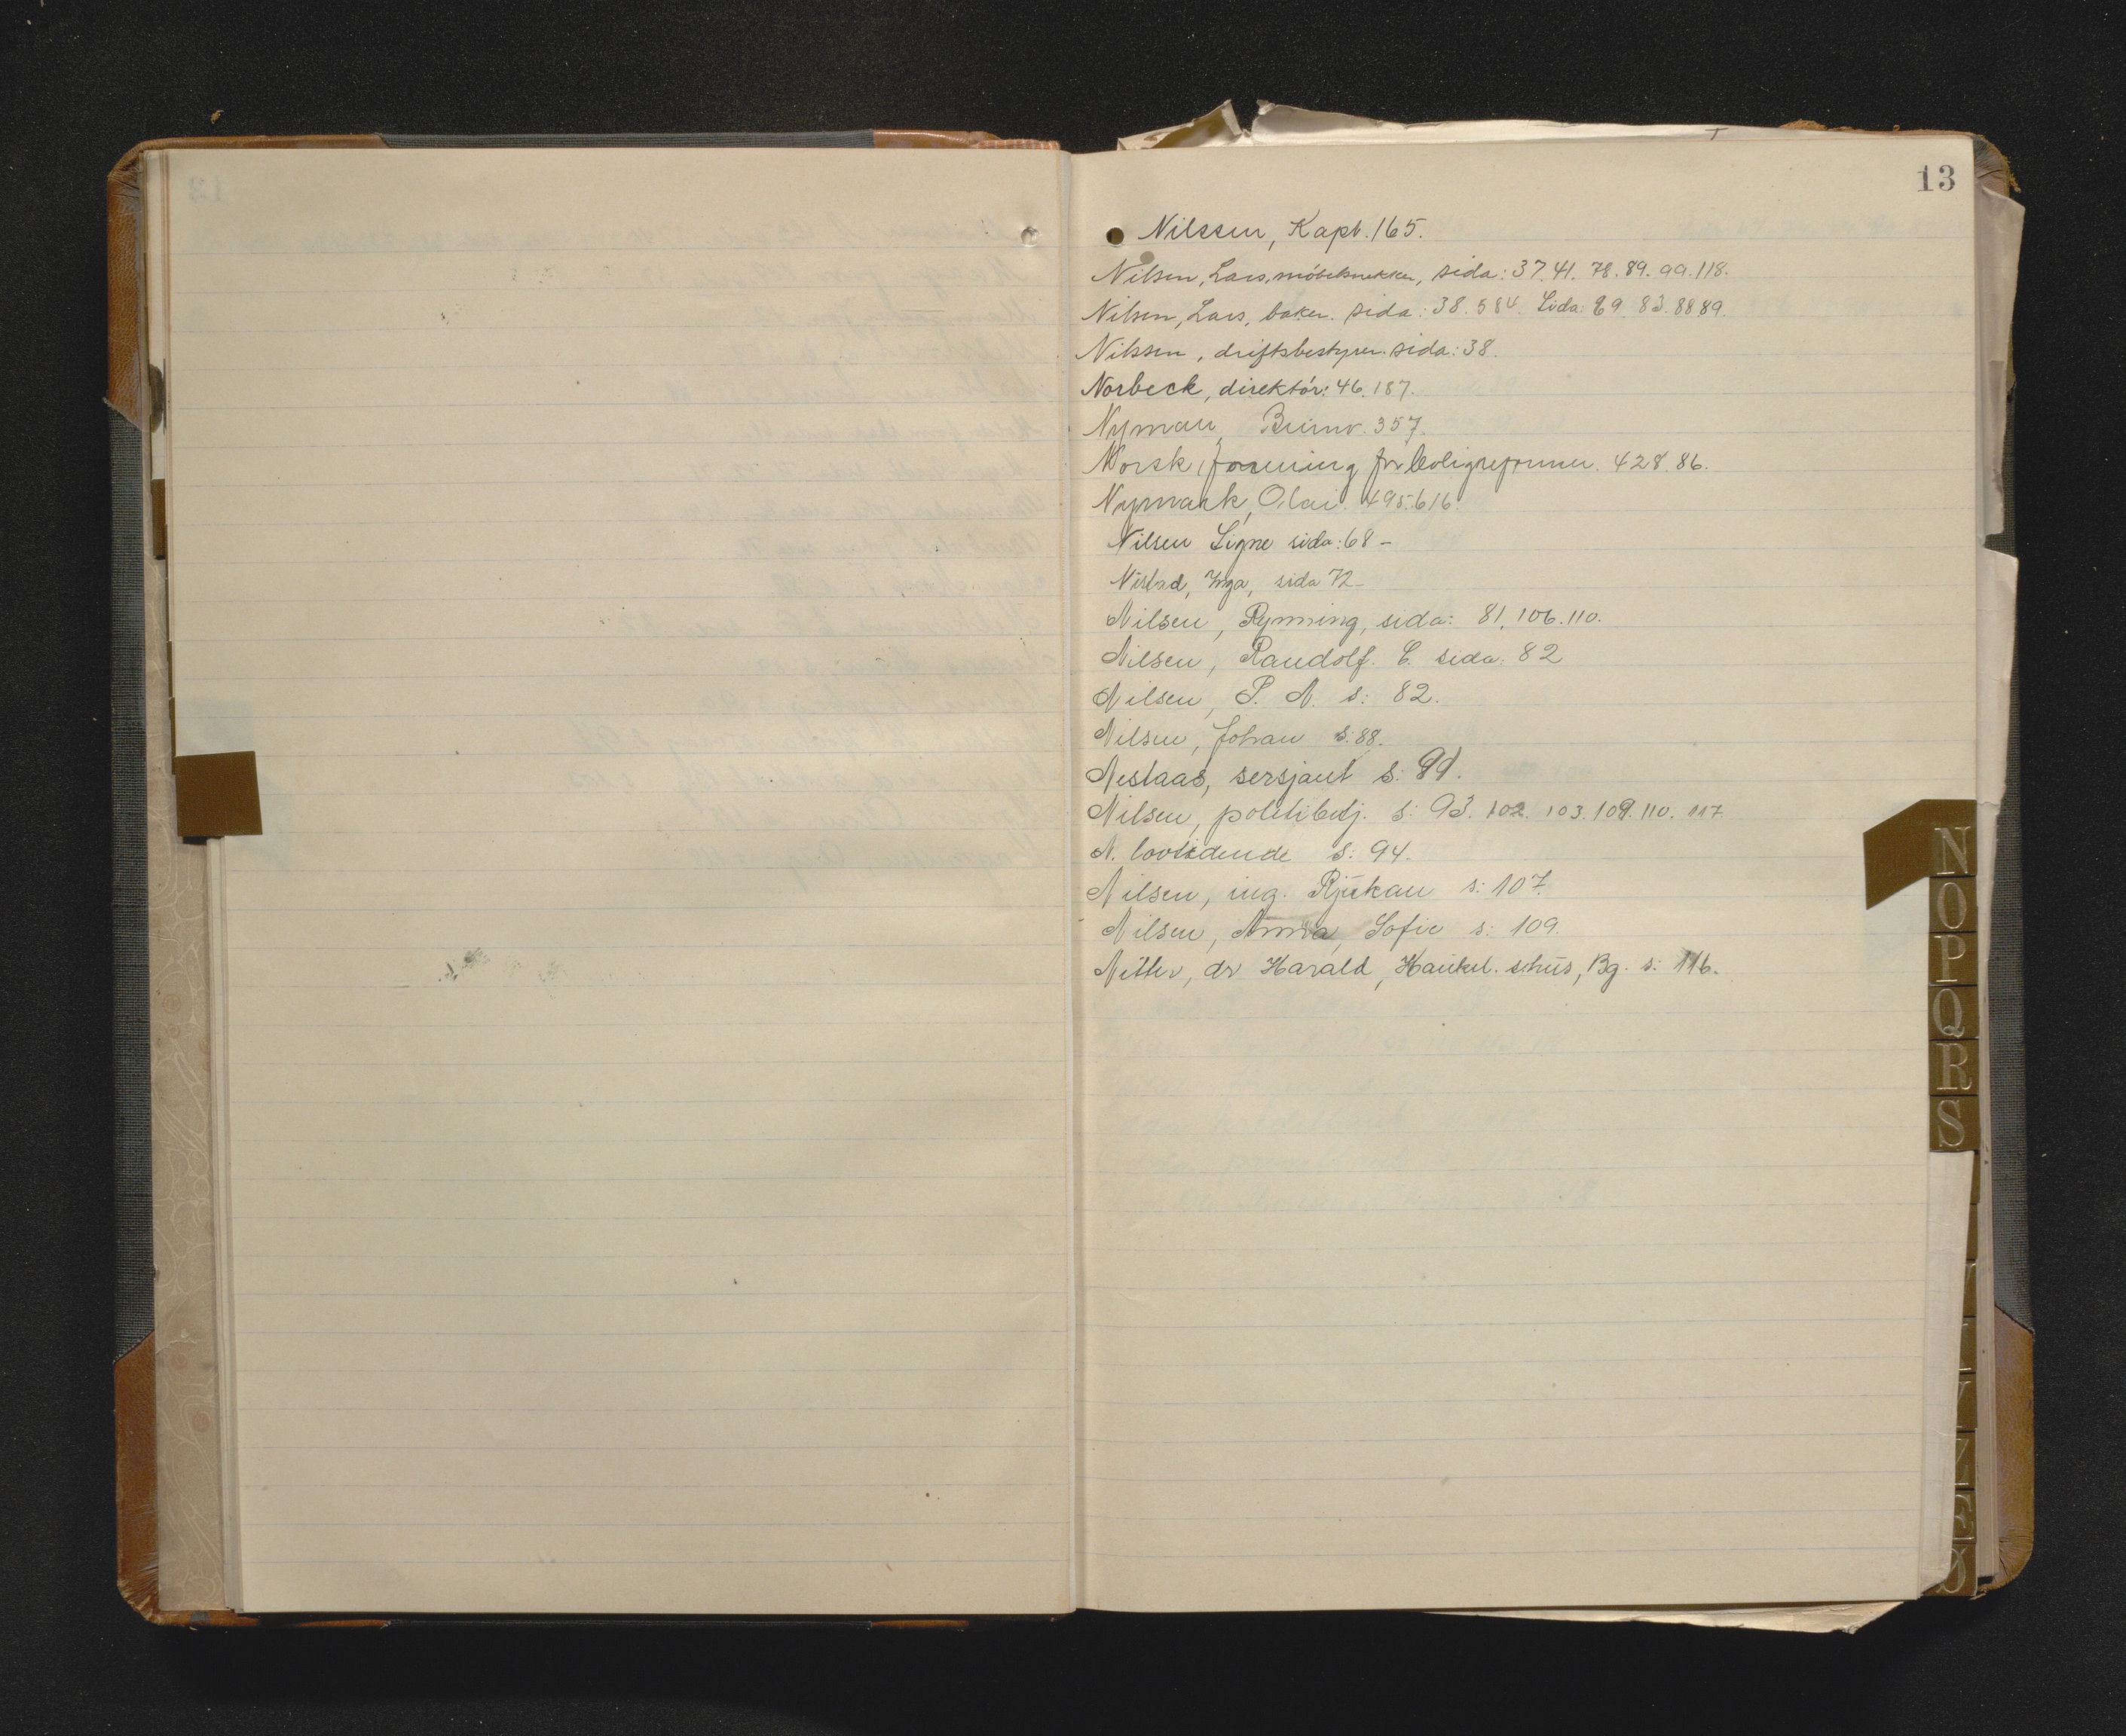 13
Nilssen, Kapt. 165.
Nilsen, Lars, möbelsnekker, sida: 37. 41. 78. 89. 99. 118.
Nilsen, Lars, baker. sida: 38. 584. Sida: 69. 83. 88 89.
Nilssen, driftsbestyrer. sida: 38.
Norbeck, direktör: 46. 187.
Nyman, 357.
Norsk forening for boligreformer. 428. 86.
Nymark, Olai. 495. 616.
Nilsen Signe sida: 68 -
Nistad, Inga, sida 72
Nilsen, Rynning, sida: 81. 106. 110.
Nilsen, Randolf. E. sida: 82
Nilsen, P. N. s: 82.
Nilsen, Johan s: 88.
Nestaas, sersjant s:
Nilsen, politibetj. s: 93. 102. 103. 109. 110. 117.
N. lovtidende s: 94.
Nilsen, ing. Rjukan s: 107.
Nilsen, Anna, Sofie s: 109.
Nitter, dr Harald, Haukel. sehus, Bg. s: 116.
N
O
P
Q
R
S